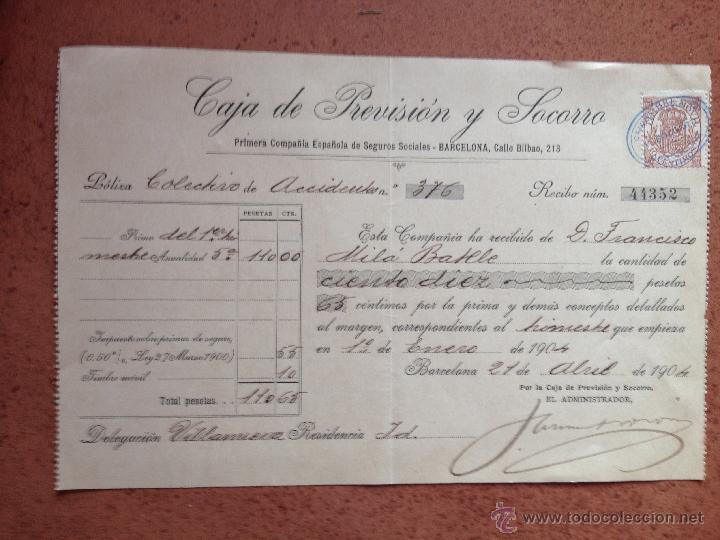 Caja de Previsión y Socorro
Primera Compañía Española de Seguros Sociales - BARCELONA, Calle Bilbao, 213
Póliza Colectivo de Accidentes n.º 376 Recibo núm. 44352
PESETAS CTS.
Prima del 1er tri
mestre Anualidad 5ª 110 00
Impuesto sobre primas de seguro,
(0,50% Ley 27 Marzo 1900) 55
Timbre móvil 10
Total pesetas 110 65
Esta Compañía ha recibido de D. Francisco
Milá Batlle la cantidad de
ciento diez pesetas
65 céntimos por la prima y demás conceptos detallados
al margen, correspondientes al trimestre que empieza
en 1º de Enero de 1904
Barcelona 21 de Abril de 1904
Por la Caja de Previsión y Socorro,
EL ADMINISTRADOR,
Delegación Villanueva Residencia Id.
www.todocoleccion.net